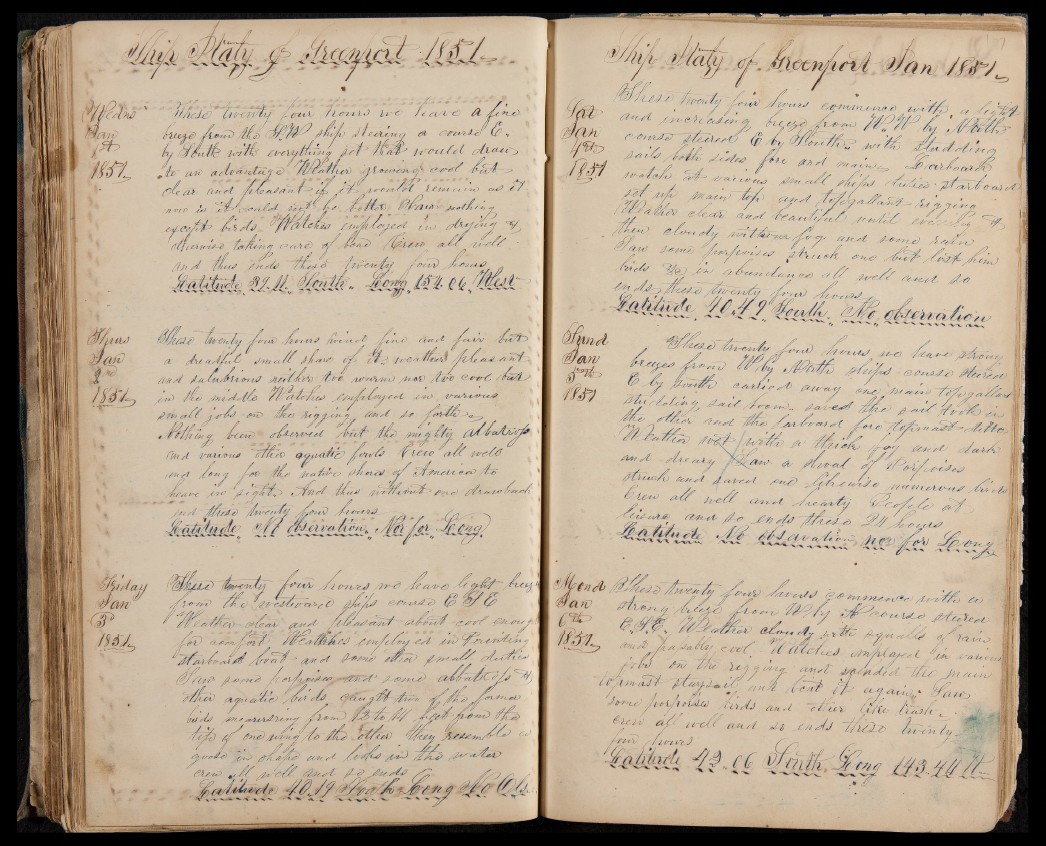 Ship Italy of Greenport 1851
Weds Jan 1st 1851
These twenty four hours we leave a fine
breeze from the S.W ship stearing a course E.
by South with everything set that would draw
to an advantage Weather growing cool but
clear and pleasant if it would remain as it
now is it could not be better Observe nothing
except birds. Watches employed in drying &
otherwise taking care of bone Crew all well
and thus ends these twenty four hours
Latitude 39.11 South. Long 154.06 West
Thurs Jan 2nd 1851
These twenty four hours wind fine and fair but
a dreadful small share of it weather pleasant
and salubrious neither too warm nor too cool but
in the middle Watches employed in various
small jobs on the rigging, and so forth
Nothing been observed but the mighty albatross
and various other aquatic fowls Crew all well
and long for the native shores of America to
heave in sight. And thus without one drawback
end these twenty four hours
Latitude No Observation. Nor for Long
Friday Jan 3d 1851
These twenty four hours we leave light breeze
from the westward ships course E S E
Weather clear and pleasant about cool enough
for comfort Watches employed in
starboard boat and some other small duties
Saw some porpoises and some albatross &
other aquatic birds caught two of the former
birds measureing from 12 to 14 feet from the
tip of one wing to the other they resemble a
goose in shape and looks in the water
crew all well and so ends
Latitude 40.19 South Long No Obs
Ship Italy of Greenport Jan 1851
Sat Jan 4th 1851
These twenty four hours commence with a light
and increasing breeze from W. W by North
course steered E by South with studding
sails both sides fore and main Larboard
watch at various small ships duties starboard
set up main top and topgallant rigging
Weather clear and beautiful until evening &
then cloudy with fog and some rain
Saw some porpoises struck one but lost him
birds &c in abundance all well and so
ends these twenty four hours
Latitude 40.49 South. No observation
Sund Jan 5th 1851
These twenty four hours we have strong
breezes from W by North ships course steered
E by South carried away one main topgallant
studding sail boom. saved the sail took in
the other and the larboard fore topmast ditto
Weather wet with a thick fog and dark
and dreary Saw a shoal of Porpoises
struck and saved one Likewise numerous birds
Crew all well and hearty People at
leisure and so ends these 24 hours
Latitude No observation, nor for Long
Mond Jan 6th 1851
These twenty four hours commence with a
strong breeze from W by N course steered
E.S.E. Weather cloudy with squalls of rain
and passably cool. Watches employed in various
jobs on the rigging and the main
topmast staysail and bent it again. Saw
some porpoises birds and other like trash
crew all well and so ends these twenty
four hours
Latitude 43.06 South Long 143.44 W